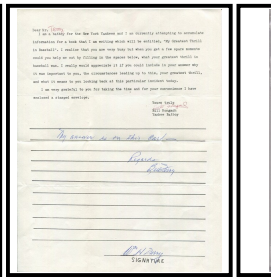 Dear Mr. Terry
I am a batboy for the New York Yankees and I am sincerely attempting to accumulate
information for a book that I am writing which will be entitled, "My Greatest Thrill
in Baseball". I realize that you are very busy but when you get a few spare moments
could you help me out by filling in the square below, what your greatest thrill in
baseball was. I really would appreciate it if you could include in your answer why
it was important to you, the circumstances leading up to this, your greatest thrill,
and what it means to you looking back at this particular incident today.
I am very grateful to you for taking the time out for your convenience I have
enclosed a stamped envelope.
Yours truly
Bill Bergesch
Yankee Batboy
My answer is on this
Regards
Bill Terry
Wm H Terry
SIGNATURE